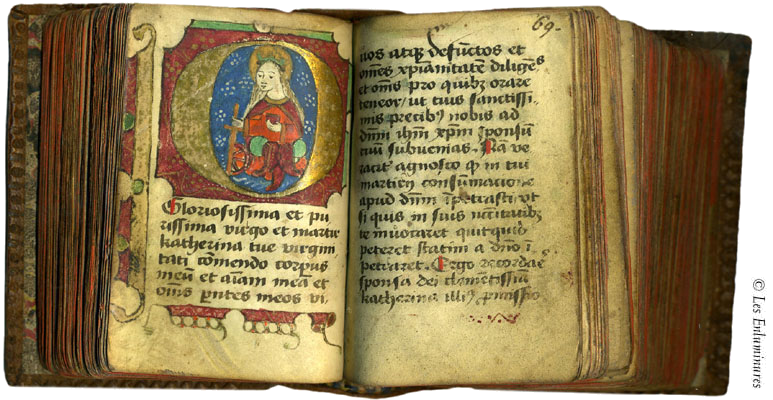 Gloriosissima et pu
rissima virgo et martir
katherina tue virgini
tati comendo corpus
meū et aīam meā et
om̄s pntes meos vi
69.
uos atq; defūctos et
om̄es xp̄ianitatē diligēs
et om̄s pro quibꝫ orare
teneor / ut tuis sanctissi
mis precibꝰ nobis ad
dnm̄ ihm̄ xp̄m sponsū
tuū subuenias. Nā ve
raciter agnosco qd in tui
martirii consūmacione
apud dnm̄ īpetrasti vt
si quis in suis nccītatibꝫ
te inuocaret quitquid
peteret statim a dnō ī
petraret. Ergo recordāe
sponsa dei clementissiā
katherina illiꝰ
© Les Enluminures